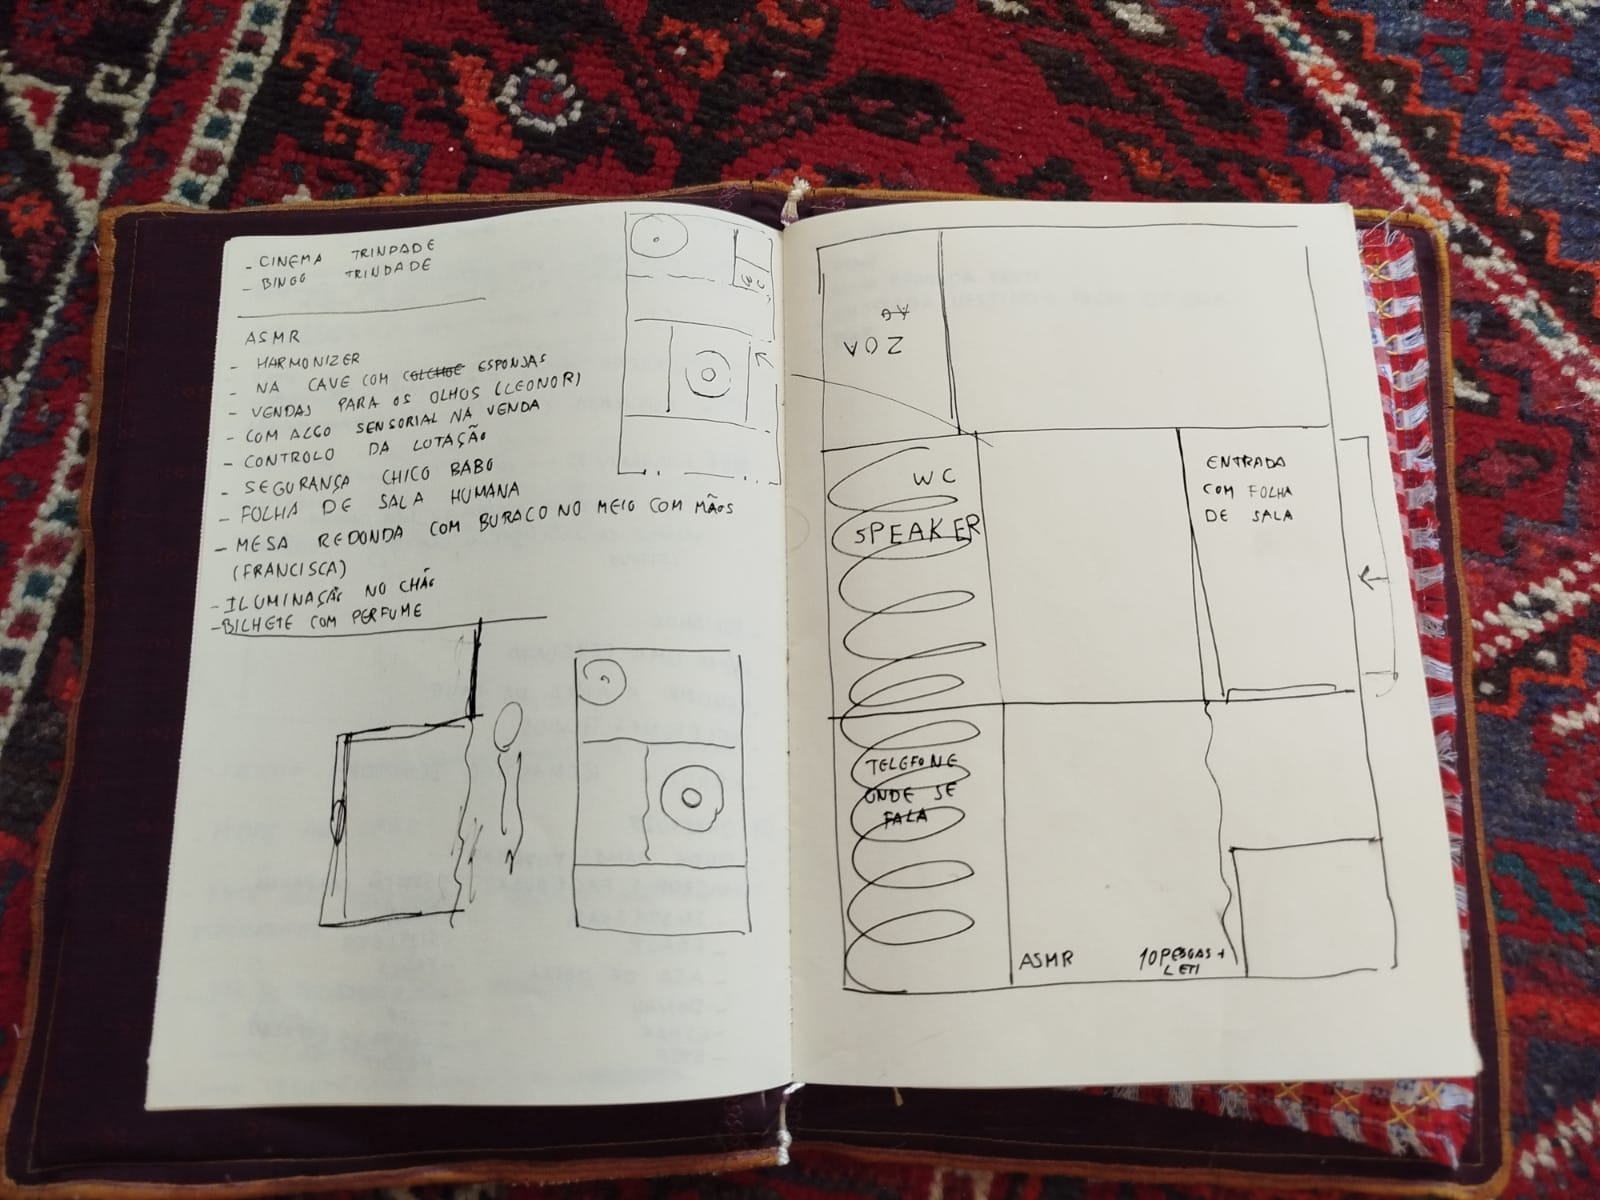 - CINEMA TRINDADE
- BINGO TRINDADE
ASMR
- HARMONIZER
- NA CAVE COM ESPONJAS
- VENDAS PARA OS OLHOS (LEONOR)
- COM ALGO SENSORIAL NA VENDA
- CONTROLO DA LOTAÇÃO
- SEGURANÇA CHICO BABO
- FOLHA DE SALA HUMANA
- MESA REDONDA COM BURACO NO MEIO COM MÃOS
(FRANCISCA)
- ILUMINAÇÃO NO CHÃO
- BILHETE COM PERFUME
WC
ZOA
WC
SPEAKER
ENTRADA
COM FOLHA
DE SALA
TELEFONE
ONDE SE
FALA
ASMR
10 PESSOAS +
LETI